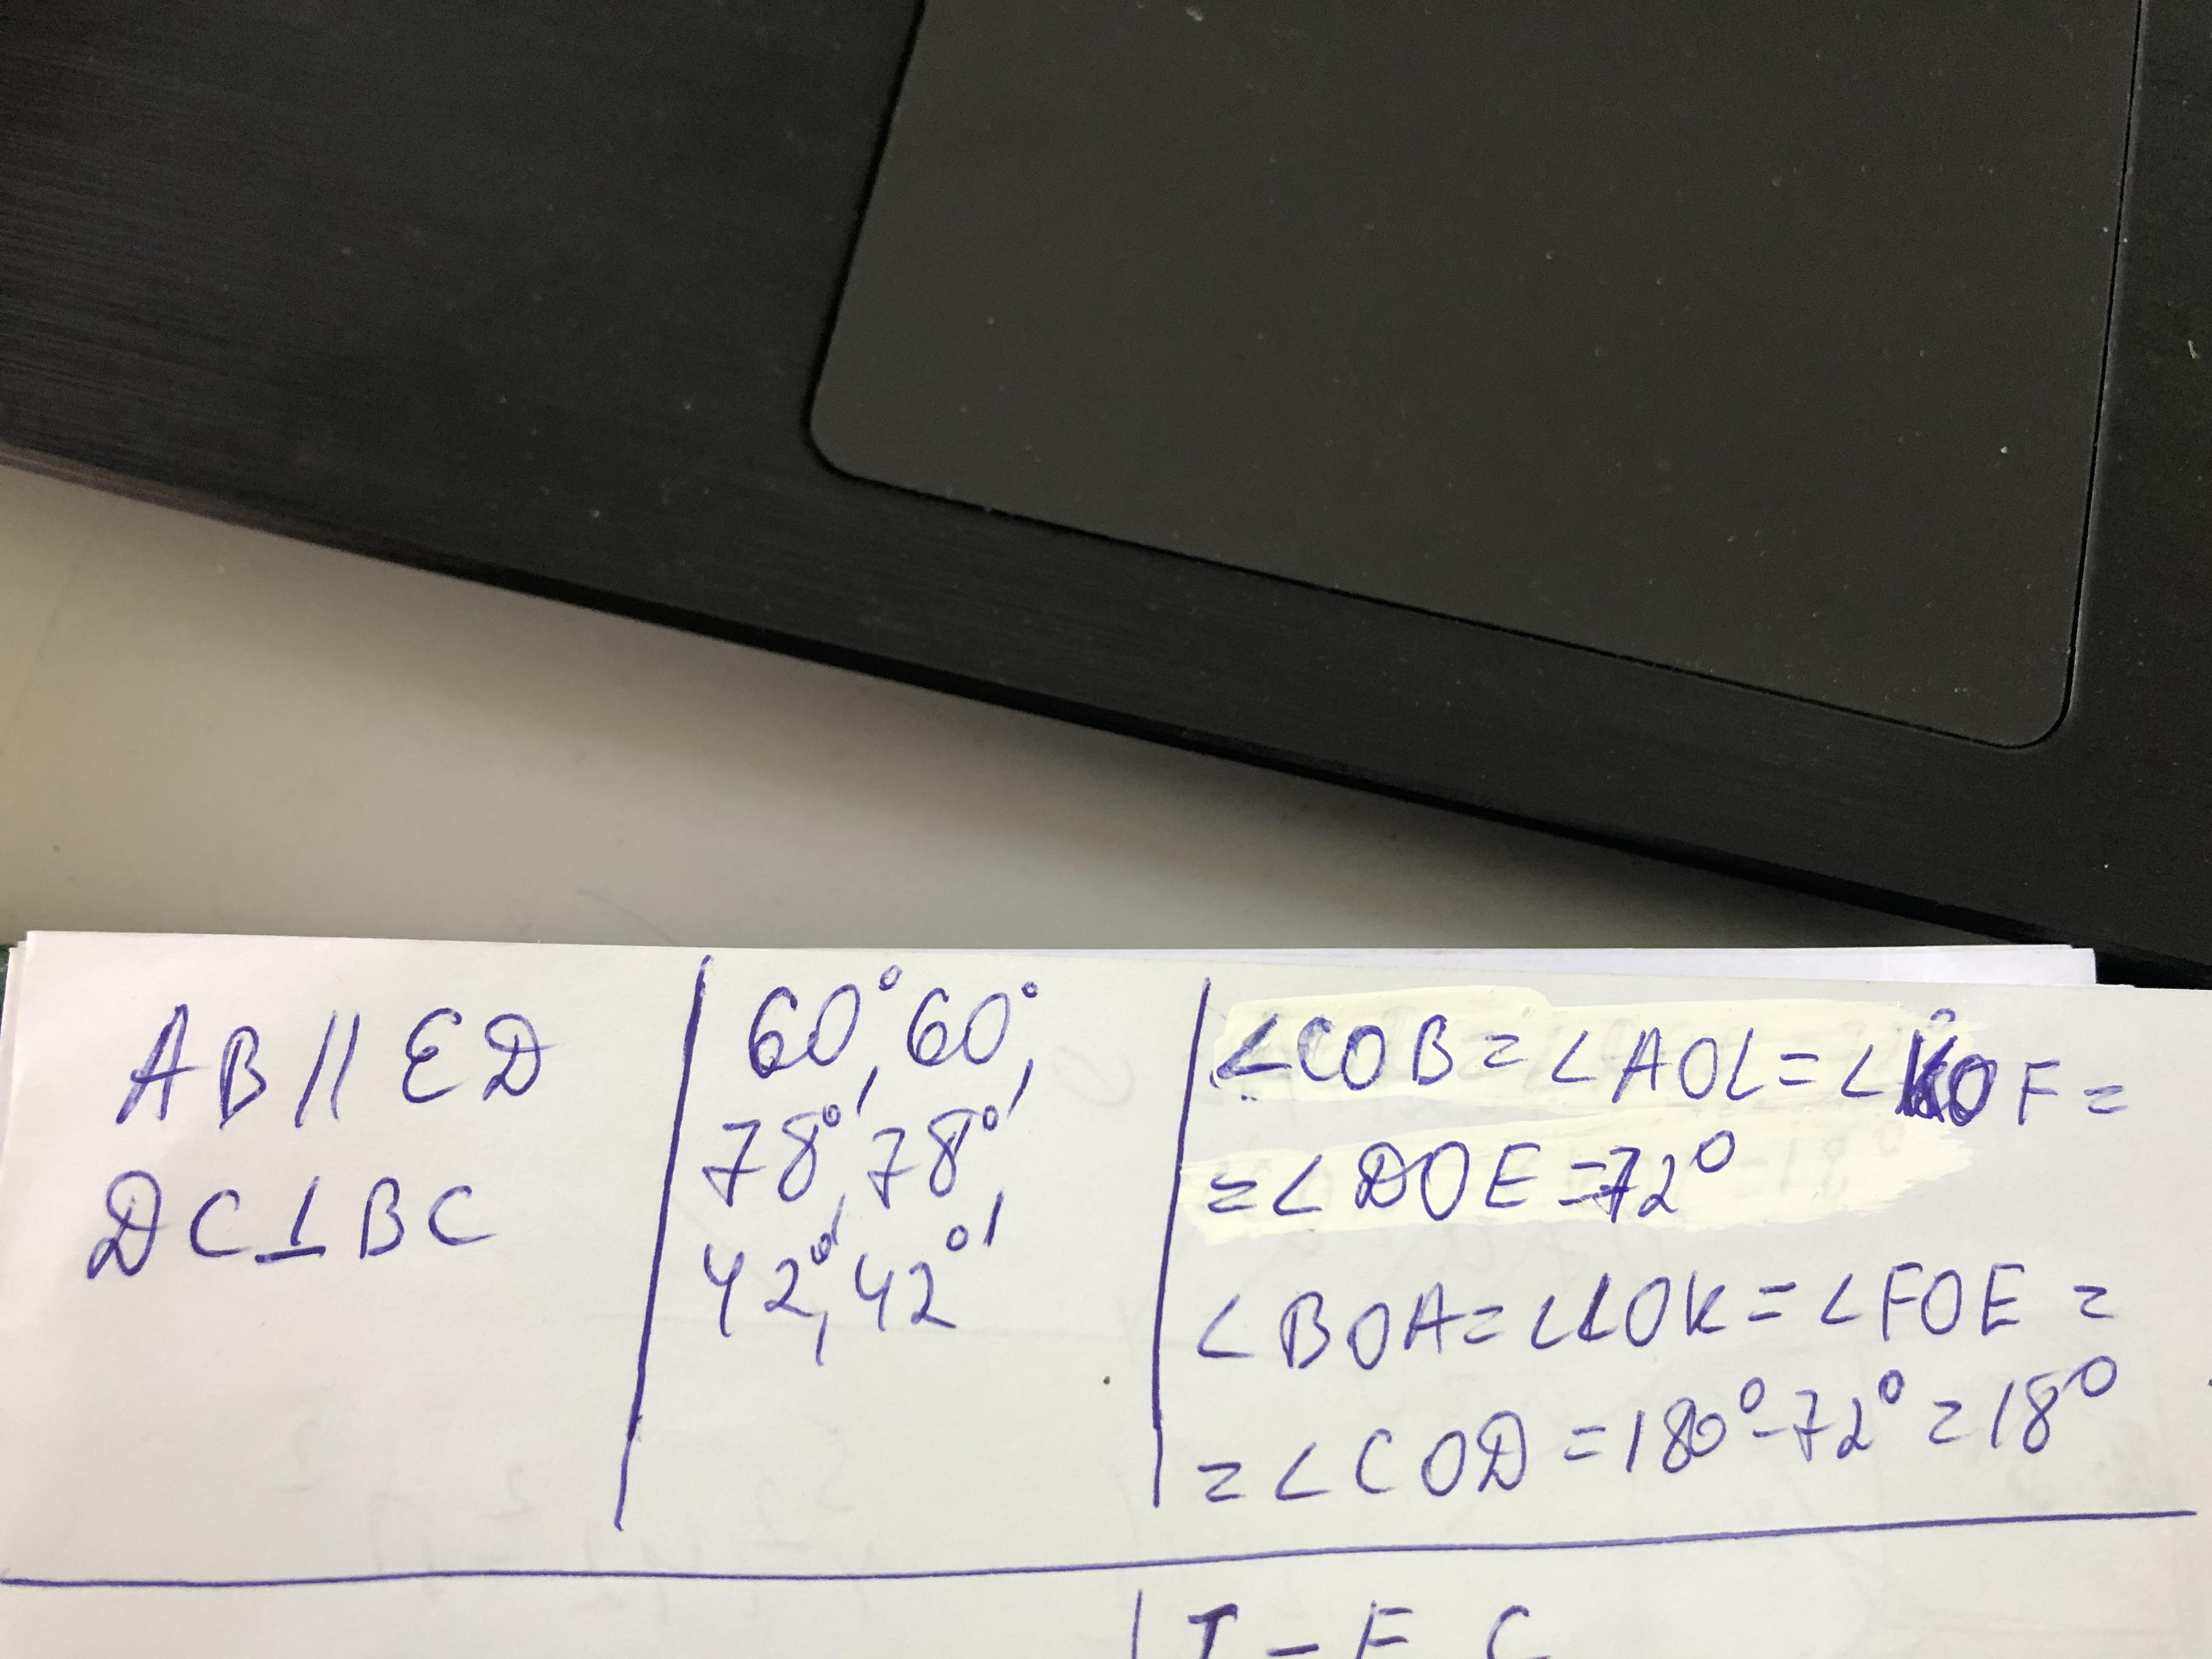 AB || ED
DC ⊥ BC
60°, 60°,
78°, 78°,
42°, 42°
∠COB = ∠AOL = ∠KOF =
= ∠DOE = 72°
∠BOA = ∠LOK = ∠FOE =
= ∠COD = 180° - 72° = 18°